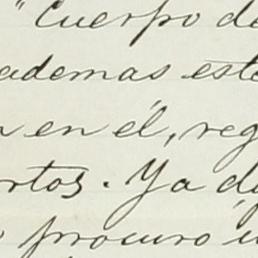 "Cuerpo de
ademas este
en él, reg
rtos. Ya de
procuro